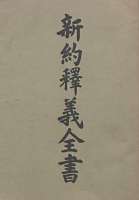 新約釋義全書